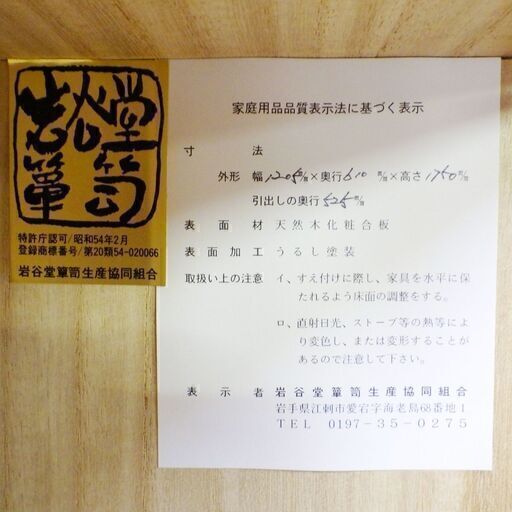 岩谷堂
簞笥
特許庁認可/昭和54年2月
登録商標番号/第20類54-020066
岩谷堂簞笥生産協同組合
家庭用品品質表示法に基づく表示
寸 法
外形 幅1205㎜×奥行610㎜×高さ1750㎜
引出しの奥行525㎜
表面材 天然木化粧合板
表面加工 うるし塗装
取扱い上の注意 イ、すえ付けに際し、家具を水平に保
たれるよう床面の調整をする。
ロ、直射日光、ストーブ等の熱等によ
り変色し、または変形することが
あるので注意して下さい。
表示者 岩谷堂簞笥生産協同組合
岩手県江刺市愛宕字海老島68番地1
TEL 0197-35-0275